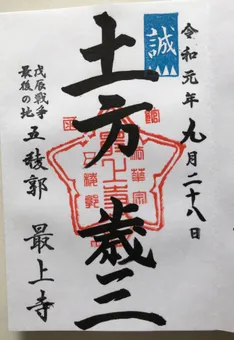 令和元年 九月二十八日
誠
土方歳三
戊辰戦争
最後の地
五稜郭 最上寺